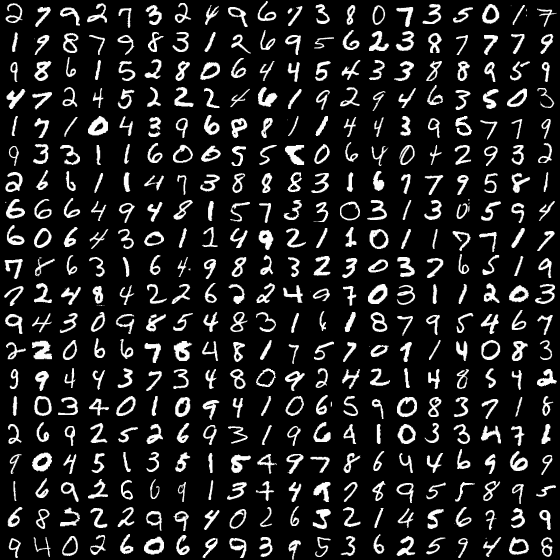 2 7 9 2 7 3 2 4 9 6 7 3 8 0 7 3 5 0 1 7
1 9 8 7 9 8 3 1 2 6 9 5 6 2 3 8 7 7 7 9
9 8 6 1 5 2 8 0 6 4 4 5 4 3 3 8 8 9 5 9
4 7 2 4 5 2 2 2 4 6 1 9 2 9 4 6 3 5 0 3
1 7 1 0 4 3 9 6 8 8 1 1 4 4 3 9 5 7 7 9
9 3 3 1 1 6 0 0 5 5 0 6 4 0 4 2 9 3 2
2 6 6 1 1 4 7 3 8 8 8 3 1 6 7 7 9 5 8 1
6 6 6 4 9 4 8 1 5 7 3 3 0 3 1 3 0 5 9 4
6 0 6 4 3 0 1 1 4 9 2 1 1 0 1 1 7 7 1 7
7 8 6 3 1 6 4 9 8 2 3 2 3 0 3 7 6 5 1 9
7 2 4 8 4 2 2 6 2 2 4 9 7 0 3 1 1 2 0 3
9 4 3 0 9 8 5 4 8 3 1 6 1 8 7 9 5 4 6 7
2 2 0 6 6 7 8 4 8 1 7 5 7 0 9 1 4 0 8 3
9 9 4 4 3 7 3 4 8 0 9 2 4 2 1 4 8 5 4 2
1 0 3 4 0 1 0 9 4 1 0 6 5 9 0 8 3 7 1 8
2 6 9 2 5 2 6 9 3 1 9 6 4 1 0 3 3 4 7 1
9 0 4 5 1 3 5 1 5 4 9 7 8 6 4 4 6 9 6 9
1 6 9 2 6 0 9 1 3 7 4 9 7 8 9 5 5 8 9 5
6 8 2 2 2 9 9 4 0 2 6 3 2 1 4 5 6 7 3 9
9 4 0 2 6 0 6 9 9 3 9 5 3 6 2 5 9 4 0 8